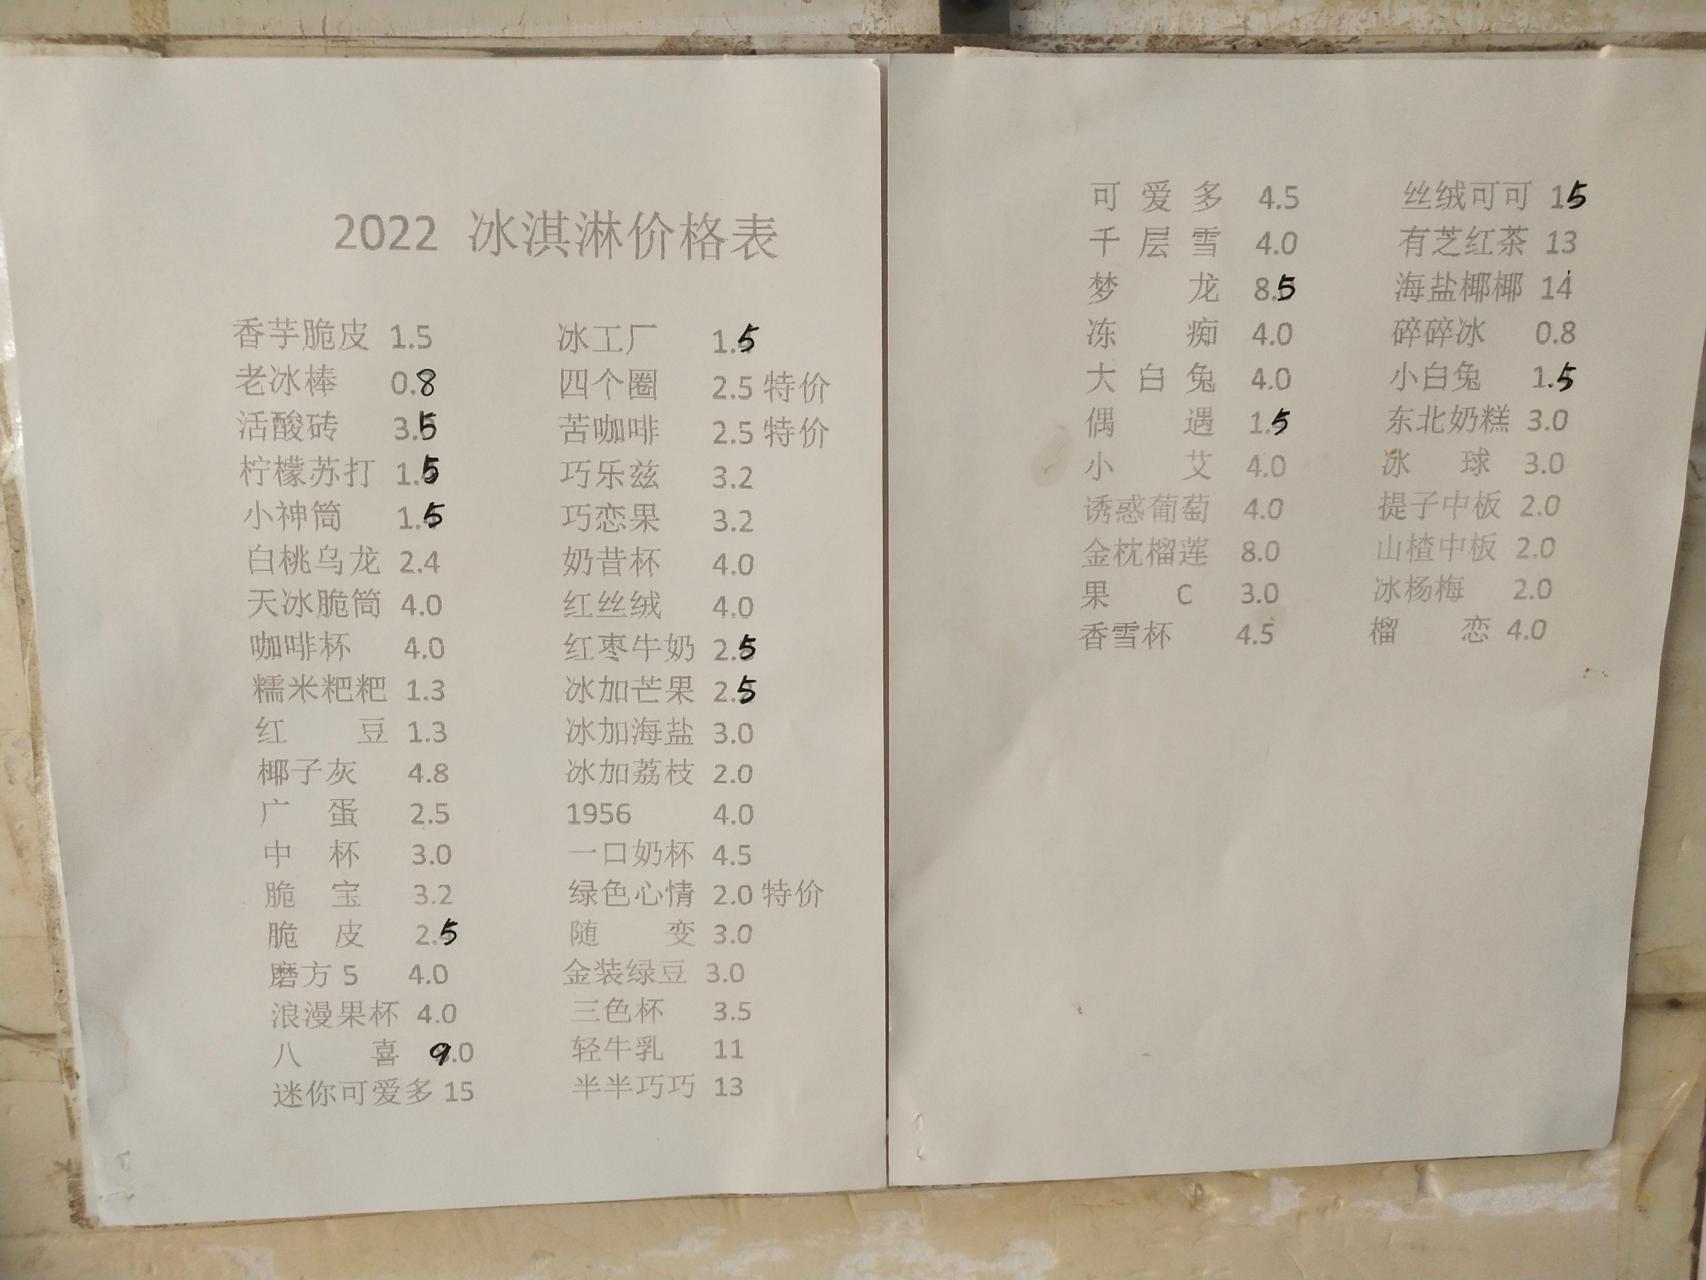 2022 冰淇淋价格表
香芋脆皮 1.5 冰工厂 1.5
老冰棒 0.8 四个圈 2.5 特价
活酸砖 3.5 苦咖啡 2.5 特价
柠檬苏打 1.5 巧乐兹 3.2
小神筒 1.5 巧恋果 3.2
白桃乌龙 2.4 奶昔杯 4.0
天冰脆筒 4.0 红丝绒 4.0
咖啡杯 4.0 红枣牛奶 2.5
糯米粑粑 1.3 冰加芒果 2.5
红 豆 1.3 冰加海盐 3.0
椰子灰 4.8 冰加荔枝 2.0
广 蛋 2.5 1956 4.0
中 杯 3.0 一口奶杯 4.5
脆 宝 3.2 绿色心情 2.0 特价
脆 皮 2.5 随 变 3.0
磨方5 4.0 金装绿豆 3.0
浪漫果杯 4.0 三色杯 3.5
八 喜 9.0 轻牛乳 11
迷你可爱多 15 半半巧巧 13
可 爱 多 4.5 丝绒可可 15
千 层 雪 4.0 有芝红茶 13
梦 龙 8.5 海盐椰椰 14
冻 痴 4.0 碎碎冰 0.8
大 白 兔 4.0 小白兔 1.5
偶 遇 1.5 东北奶糕 3.0
小 艾 4.0 冰 球 3.0
诱惑葡萄 4.0 提子中板 2.0
金枕榴莲 8.0 山楂中板 2.0
果 C 3.0 冰杨梅 2.0
香雪杯 4.5 榴 恋 4.0